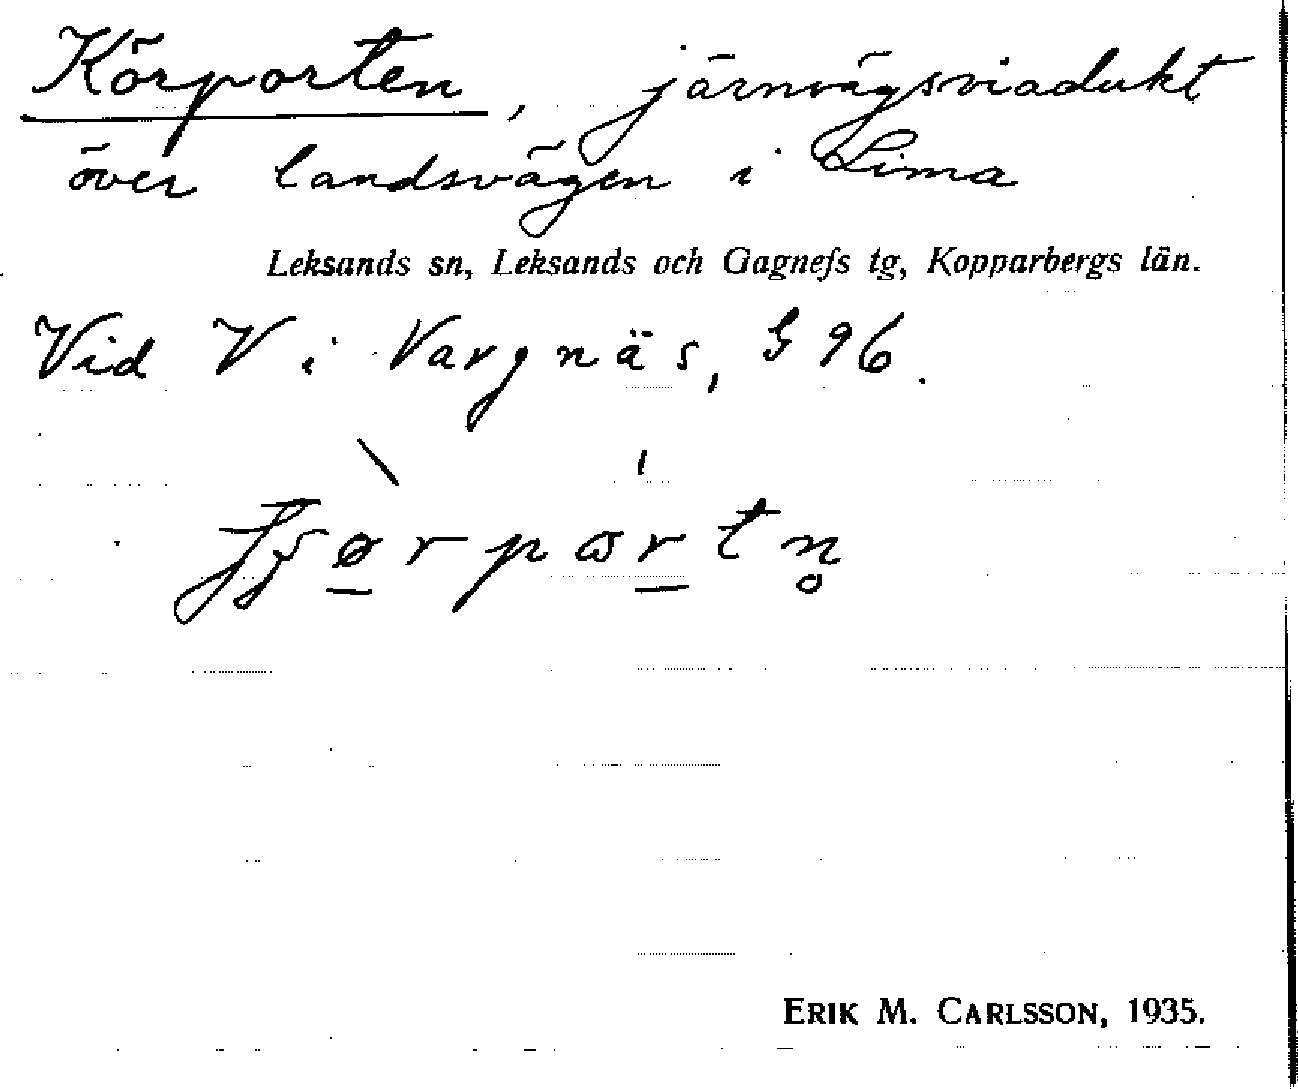 Körporten, järnvägsviadukt
över landsvägen i Lima
Leksands sn, Leksands och Gagnefs tg, Kopparbergs län.
Vid V i Vargnäs, G 96.
ERIK M. CARLSSON, 1935.